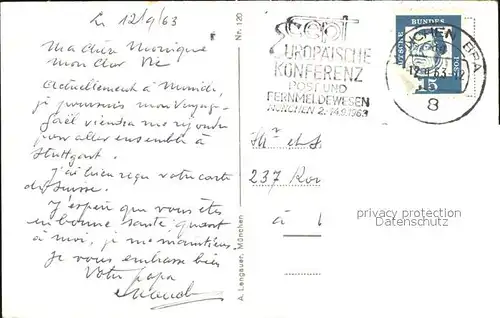 Le 12/9/63
Ma chère Monique
mon cher
Actuellement à Munich,
je poursuis mon voyage.
Gaël viendra me rejoindre
pour aller ensemble à
Stuttgart.
J'ai bien reçu votre carte
de Suisse.
J'espère que vous êtes
en bonne santé, quant
à moi, je me maintiens.
Je vous embrasse bien
Votre papa
Nr. 120
A. Lengauer, München
cept
EUROPÄISCHE
KONFERENZ
POST UND
FERNMELDEWESEN
MÜNCHEN 2.-14.9.1963
DEUTSCHE BUNDESPOST
15
MÜNCHEN BPA
8
Mr et
237
à
privacy protection
Datenschutz